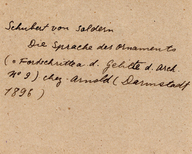 Schubert von Soldern
Die Sprache des Ornaments
(« Fortschritte a. d. Gebiete d. Arch.
Nº 9) chez Arnold (Darmstadt
1896)